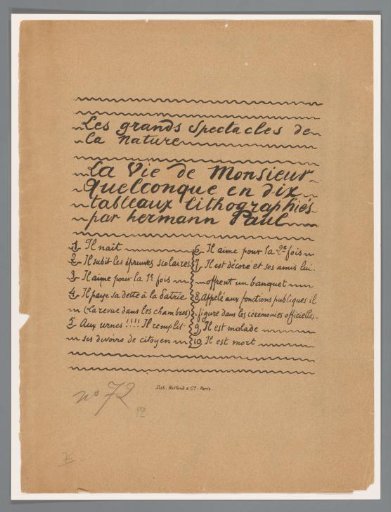 Les grands Spectacles de
la Nature
la Vie de Monsieur
Quelconque en dix
tableaux lithographiés
par hermann Paul
1 Il nait
2 Il subit les épreuves scolaires
3 Il aime pour la 1e fois
4 Il paye sa dette à la Patrie
(La revue dans les chambres)
5 Aux urnes !!!! Il remplit
ses devoirs de citoyen
6 Il aime pour la 2e fois
7 Il est décoré et ses amis lui
offrent un banquet
8 Appelé aux fonctions publiques il
figure dans les cérémonies officielles.
9 Il est malade
10 Il est mort
Paris
no 72